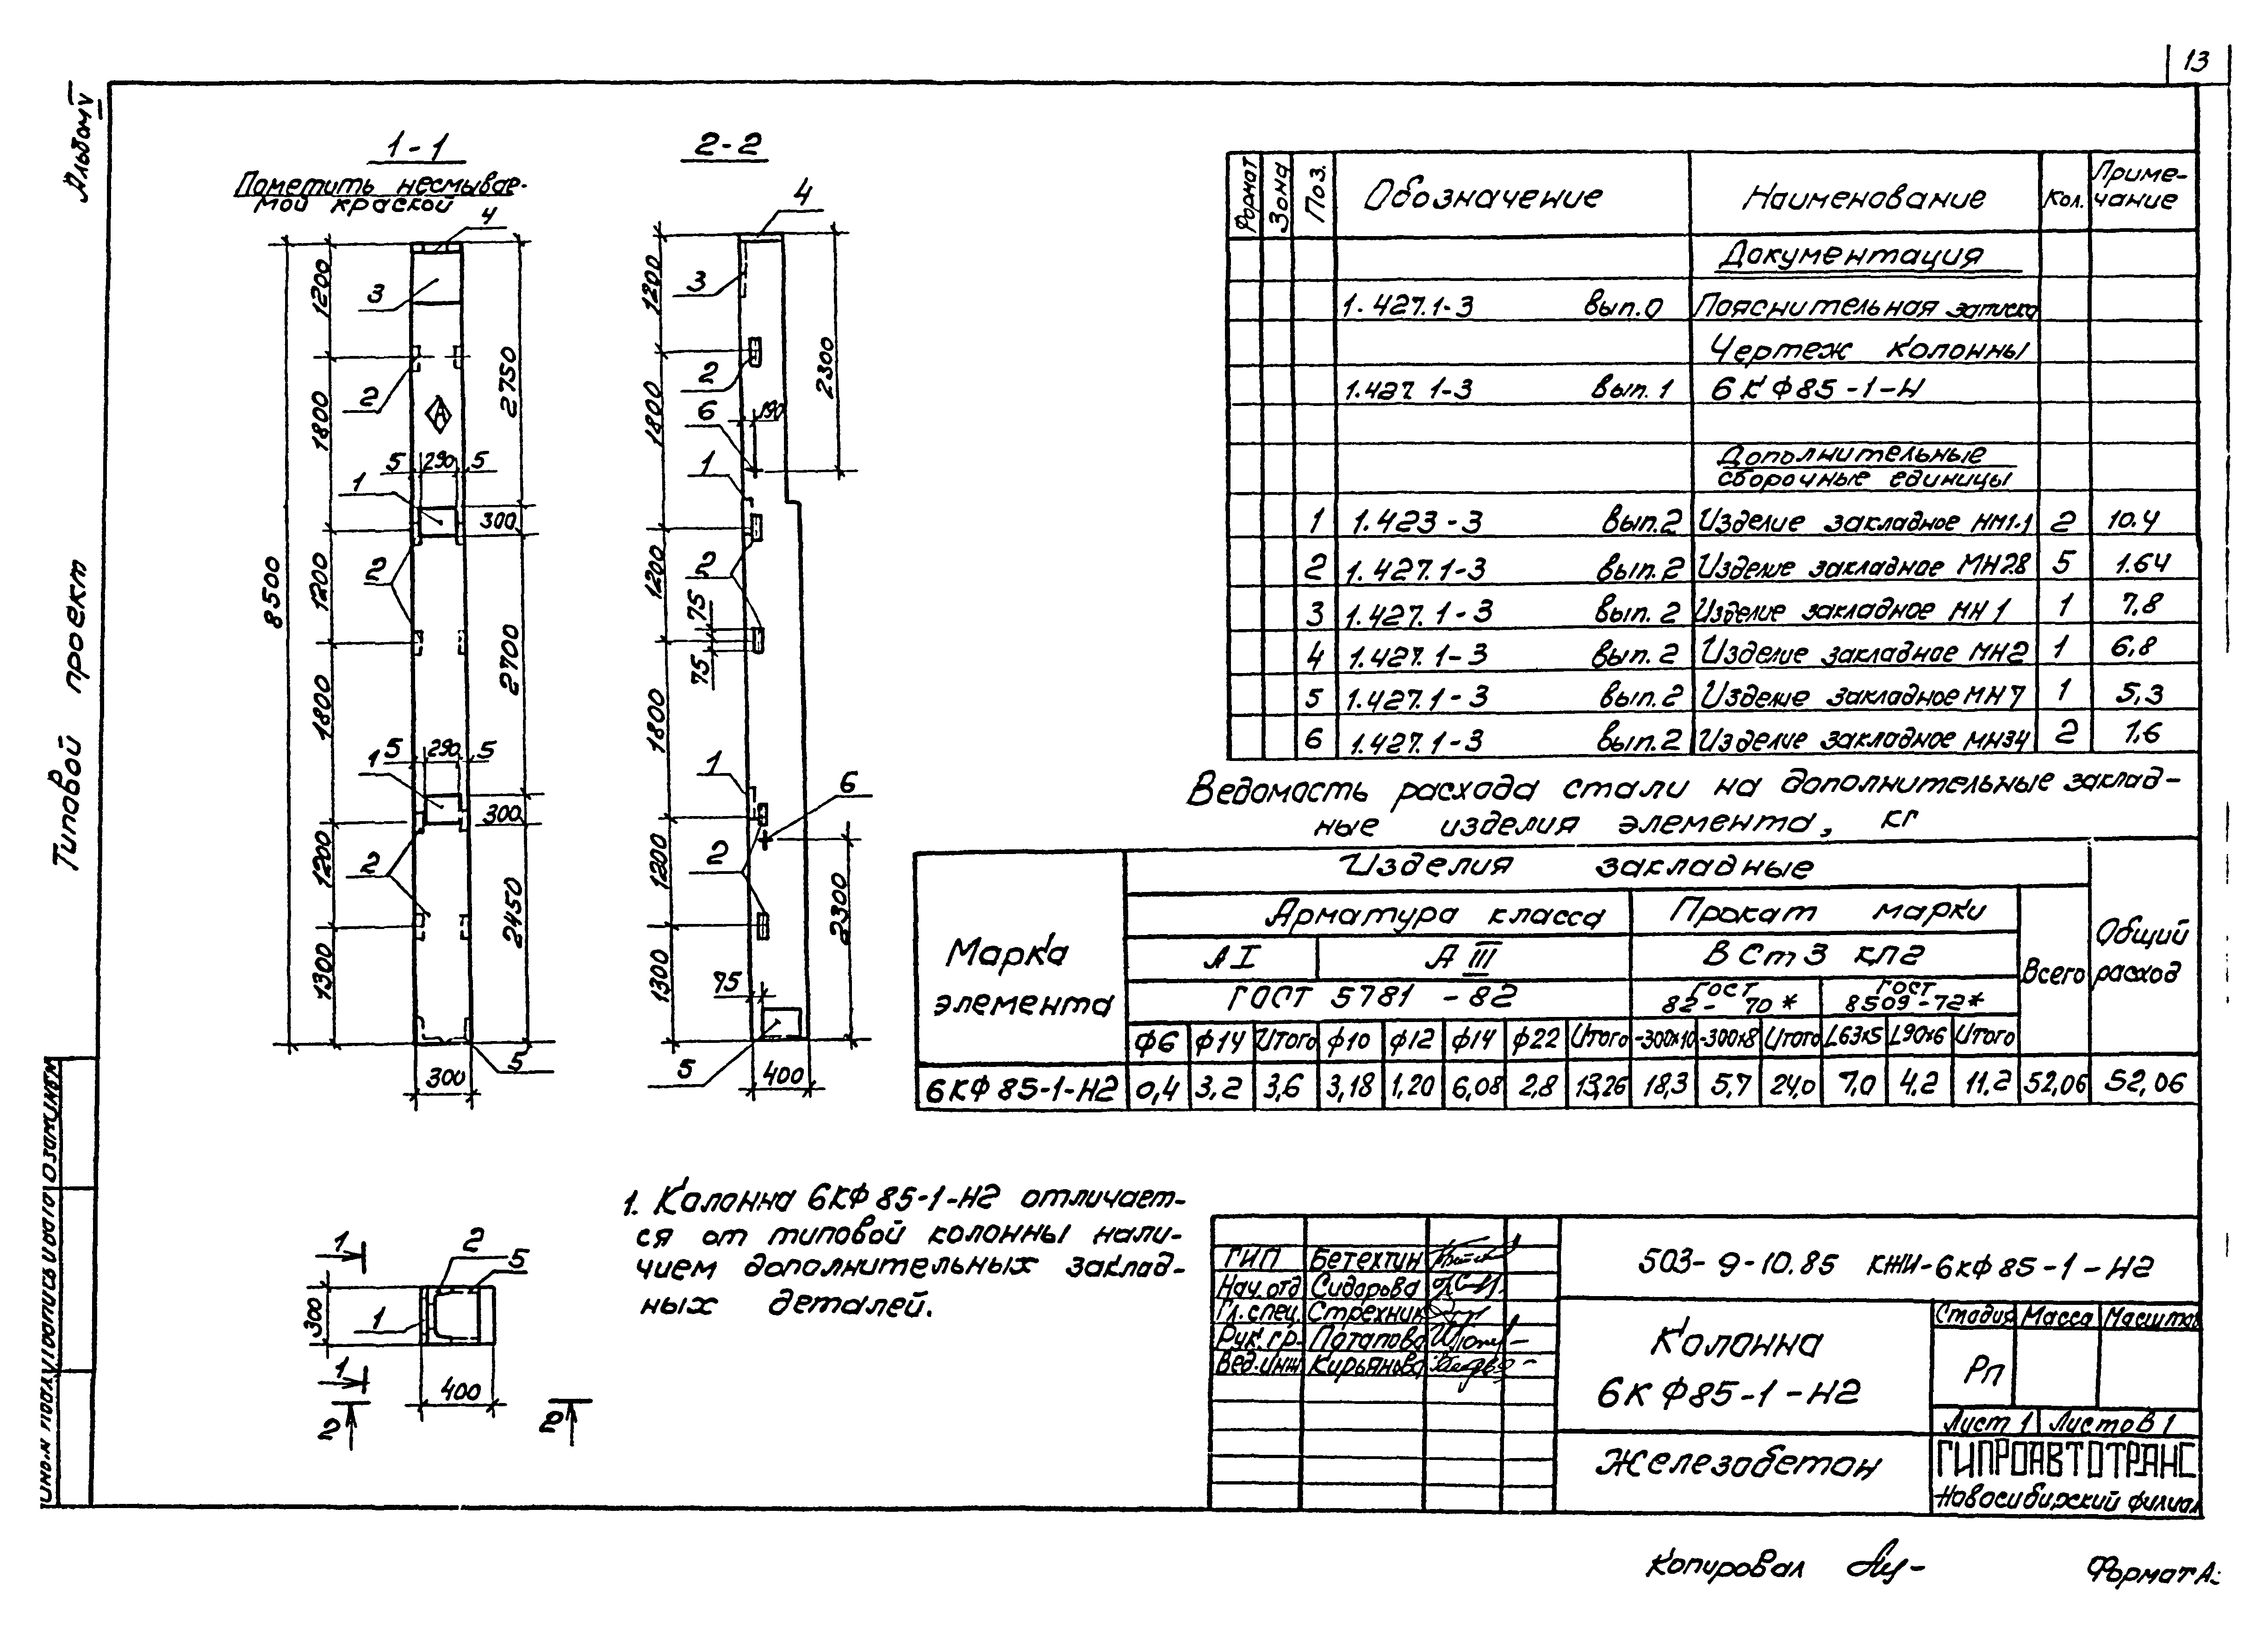 13
Альбом V
Типовой проект
1-1
Пометить несмывае-
мой краской
4
3
2
1
2
1
2
5
8500
1200
1800
1200
1800
1200
1300
2750
300
2700
300
2450
5 290 5
5 290 5
300
А
2-2
4
3
2
6
1
2
1
6
2
5
1200
1800
1200
1800
1200
1300
190
75
75
75
2300
2300
400
1
2
5
1
300
1
400
2
2
Формат Зона Поз. Обозначение Наименование Кол. Приме-
чание
Документация
1.427.1-3 вып.0 Пояснительная записка
Чертеж колонны
1.427.1-3 вып.1 6КФ85-1-Н
Дополнительные
сборочные единицы
1 1.423-3 вып.2 Изделие закладное МН1.1 2 10.4
2 1.427.1-3 вып.2 Изделие закладное МН28 5 1.64
3 1.427.1-3 вып.2 Изделие закладное МН1 1 7,8
4 1.427.1-3 вып.2 Изделие закладное МН2 1 6,8
5 1.427.1-3 вып.2 Изделие закладное МН7 1 5,3
6 1.427.1-3 вып.2 Изделие закладное МН34 2 1,6
Ведомость расхода стали на дополнительные заклад-
ные изделия элемента, кг
Марка
элемента
Изделия закладные
Арматура класса Прокат марки
АI АIII ВСт3 кп2
ГОСТ 5781-82 ГОСТ
82-70* ГОСТ
8509-72*
Всего
Общий
расход
ф6 ф14 Итого ф10 ф12 ф14 ф22 Итого -300х10 -300х8 Итого L63х5 L90х6 Итого
6КФ85-1-Н2 0,4 3,2 3,6 3,18 1,20 6,08 2,8 13,26 18,3 5,7 24,0 7,0 4,2 11,2 52,06 52,06
1. Колонна 6КФ85-1-Н2 отличает-
ся от типовой колонны нали-
чием дополнительных заклад-
ных деталей.
ГИП Бетехтин
Нач.отд Сидорова
Гл.спец. Стрехник
Рук.гр. Потапова
Вед.инж Кирьянова
503-9-10.85 КЖИ-6КФ85-1-Н2
Колонна
6КФ85-1-Н2
Железобетон
Стадия Масса Масштаб
Рп
Лист 1 Листов 1
ГИПРОАВТОТРАНС
Новосибирский филиал
Копировал
Формат А